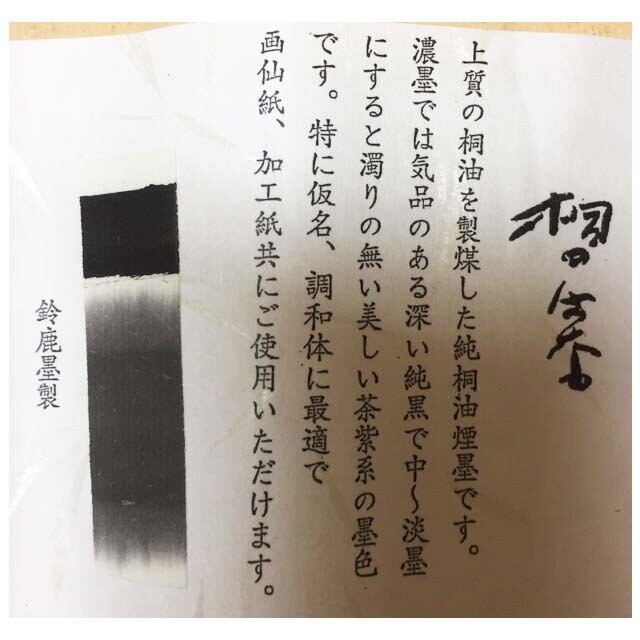 桐の
上質の桐油を製煤した純桐油煙墨です。
濃墨では気品のある深い純黒で中〜淡墨
にすると濁りの無い美しい茶紫系の墨色
です。特に仮名、調和体に最適で
画仙紙、加工紙共にご使用いただけます。
鈴鹿墨製